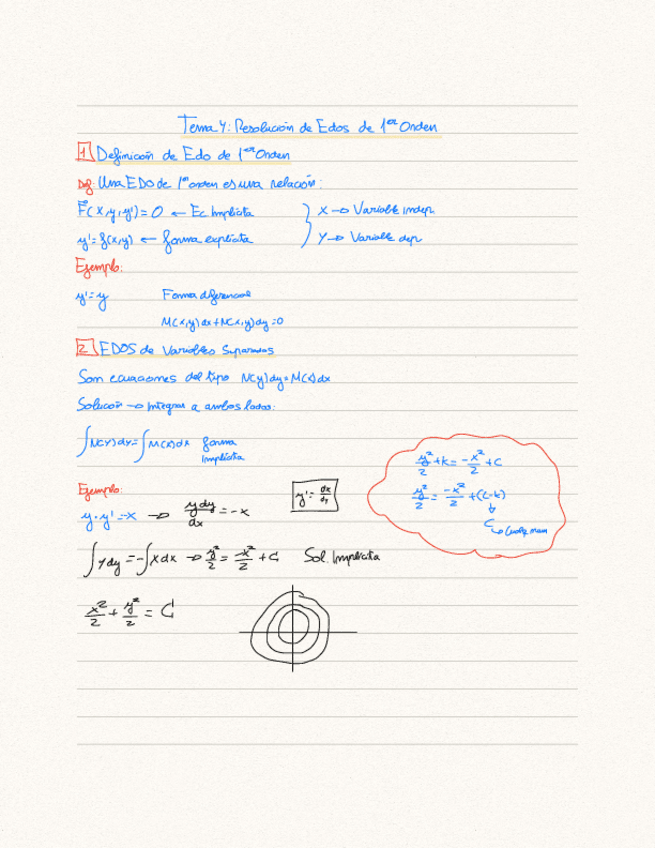 Tema 4: Resolución de Edos de 1er Orden
1 Definición de Edo de 1er Orden
Def: Una EDO de 1er orden es una relación:
F(x,y,y')=0 ← Ec Implícita } X → Variable indep.
y'=f(x,y) ← forma explícita } Y → Variable dep
Ejemplo:
y'=y Forma diferencial
M(x,y)dx+N(x,y)dy=0
2 EDOS de Variables Separadas
Son ecuaciones del tipo N(y)dy=M(x)dx
Solución → Integrar a ambos lados:
∫N(y)dy=∫M(x)dx forma implícita
Ejemplo:
y·y'=-x → ydy/dx = -x
y'=dx/dy
y²/2+k=-x²/2+C
y²/2=-x²/2+(C-k)
C
∫ydy=-∫xdx → y²/2=-x²/2+C Sol. Implícita
x²/2+y²/2=C